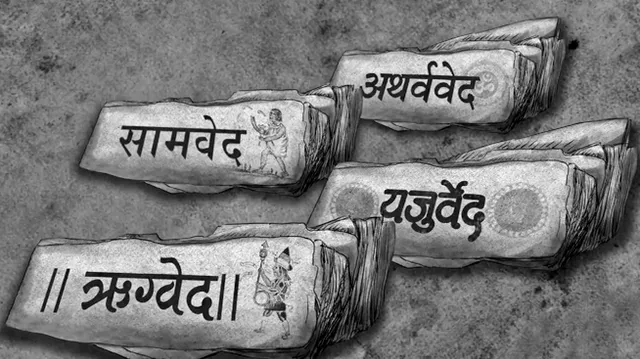 अथर्ववेद
सामवेद
यजुर्वेद
|| ऋग्वेद||